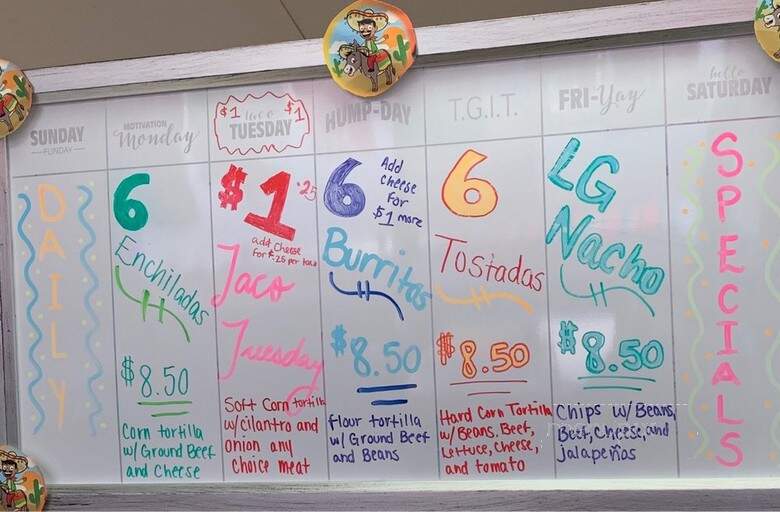 SUNDAY
FUNDAY
DAILY
MOTIVATION
Monday
6
Enchiladas
$8.50
Corn tortilla
w/ Ground Beef
and Cheese
$1 $1
TUESDAY
$1.25
add cheese
for $.25 per taco
Taco
Tuesday
Soft Corn tortilla
w/cilantro and
onion any
choice meat
HUMP-DAY
6
Add
cheese
for
$1 more
Burritos
$8.50
flour tortilla
w/ Ground Beef
and Beans
T.G.I.T.
6
Tostadas
$8.50
Hard Corn Tortilla
w/Beans, Beef,
Lettuce, Cheese,
and tomato
FRI-Yay
LG
Nacho
$8.50
Chips w/Beans,
Beef, Cheese, and
jalapeños
hello
SATURDAY
SPECIALS